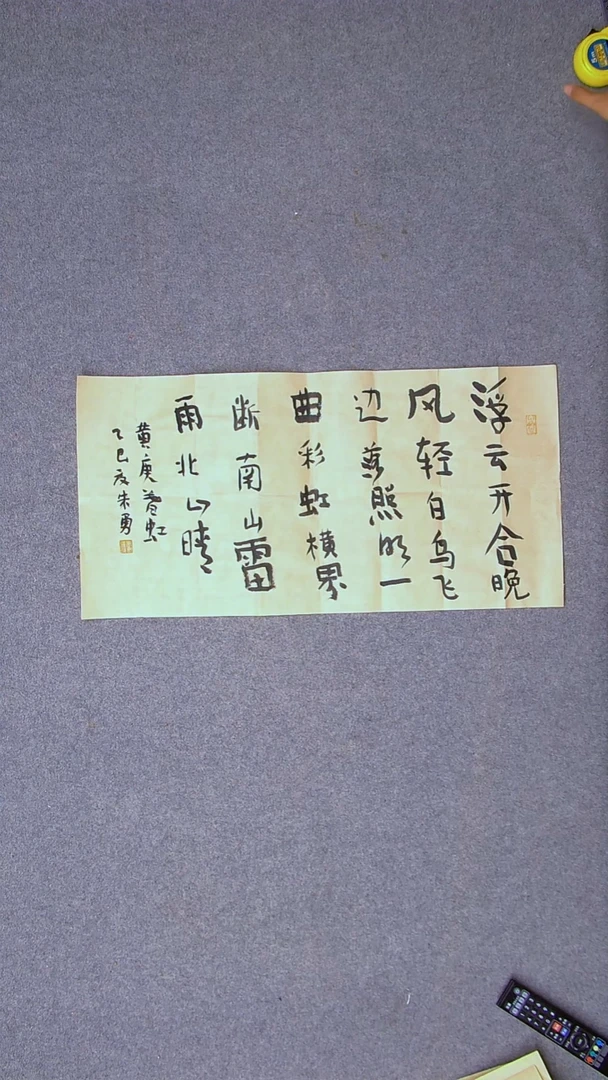 浮云开合晚
风轻白鸟飞
边落照明一
曲彩虹横界
断南山雷
雨北山晴
黄庚暮虹
乙巳夏朱勇